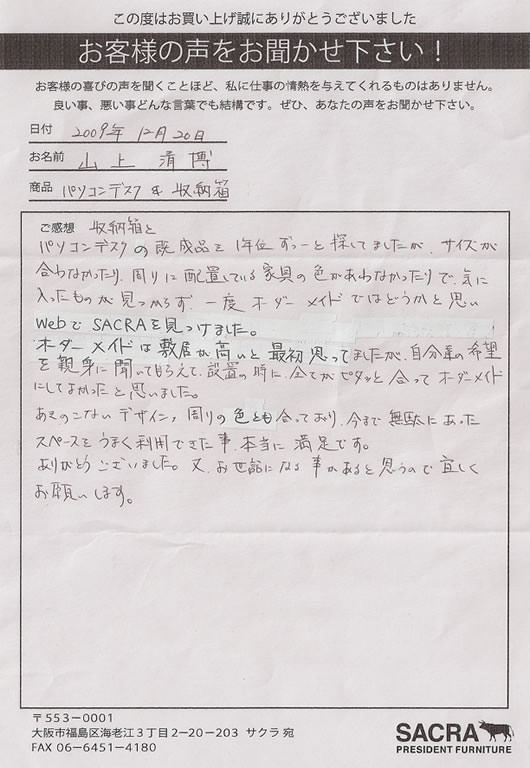 この度はお買い上げ誠にありがとうございました
お客様の声をお聞かせ下さい！
お客様の喜びの声を聞くことほど、私に仕事の情熱を与えてくれるものはありません。
良い事、悪い事どんな言葉でも結構です。ぜひ、あなたの声をお聞かせ下さい。
日付 2009年 12月20日
お名前 山上 清博
商品 パソコンデスク & 収納箱
ご感想 収納箱と
パソコンデスクの既成品を1年位ずっーと探してましたが、サイズが
合わなかったり、周りに配置している家具の色があわなかったりで、気に
入ったものが見つからず、一度オーダーメイドではどうかと思い
WebでSACRAを見つけました。
オーダーメイドは敷居が高いと最初思ってましたが、自分達の希望
を親身に聞いて目らえて、設置の時に、全てがピタッと合ってオーダーメイド
にしてよかったと思いました。
あきのこないデザイン、周りの色とも合っており、今まで無駄にあった
スペースをうまく利用できた事、本当に満足です。
ありがとうございました。又、お世話になる事があると思うので宜しく
お願いします。
〒553-0001
大阪市福島区海老江3丁目2-20-203 サクラ宛
FAX 06-6451-4180
SACRA
PRESIDENT FURNITURE